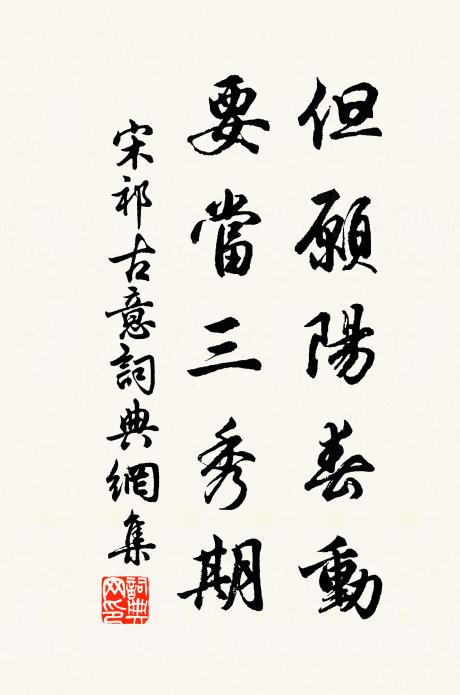 但願陽春動
要當三秀期
宋祁古意詞典網集
詞典網印